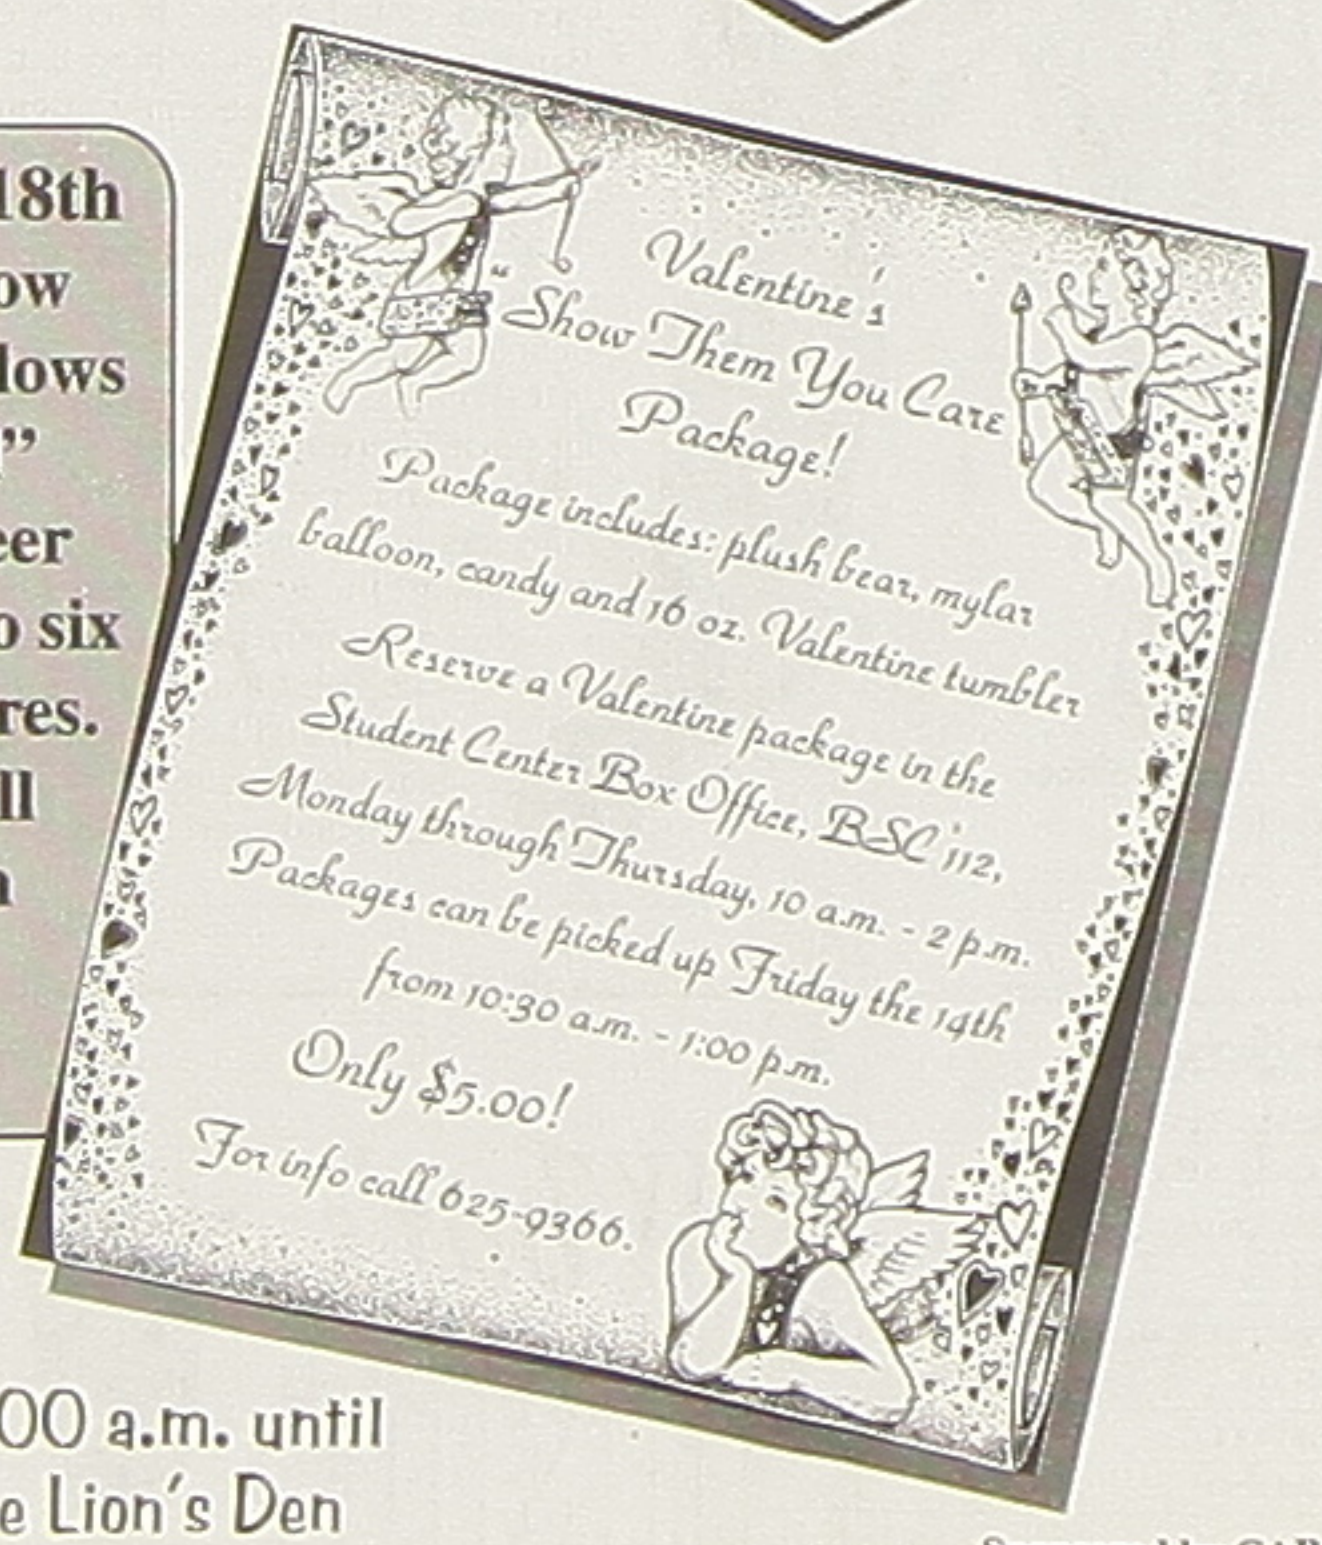 18th
ow
lows
”
eer
o six
res.
ll
n
Valentine's
“Show Them You Care
Package!
Package includes: plush bear, mylar
balloon, candy and 16 oz. Valentine tumbler
Reserve a Valentine package in the
Student Center Box Office, BSC 112,
Monday through Thursday, 10 a.m. - 2 p.m.
Packages can be picked up Friday the 14th
from 10:30 a.m. - 1:00 p.m.
Only $5.00!
For info call 625-9366.
00 a.m. until
e Lion's Den